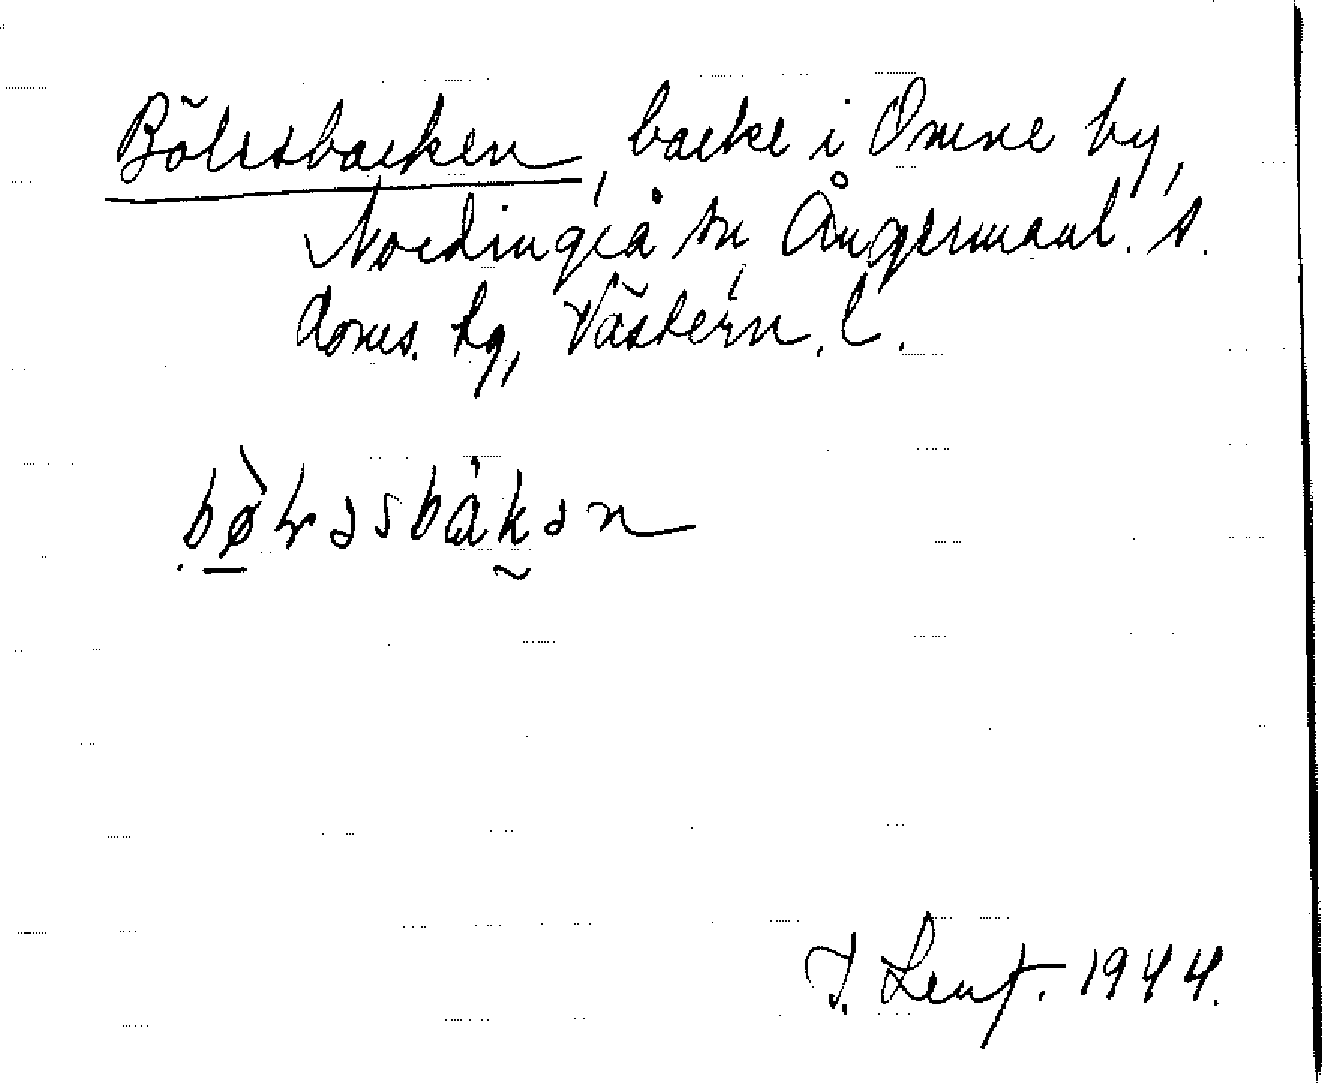 Bölesbacken, backe i Omne by,
Nordingrå sn, Ångermanl. s.
doms. hg, Västern. l.
bø̀ɫəsbàkən
I. Lenf. 1944.